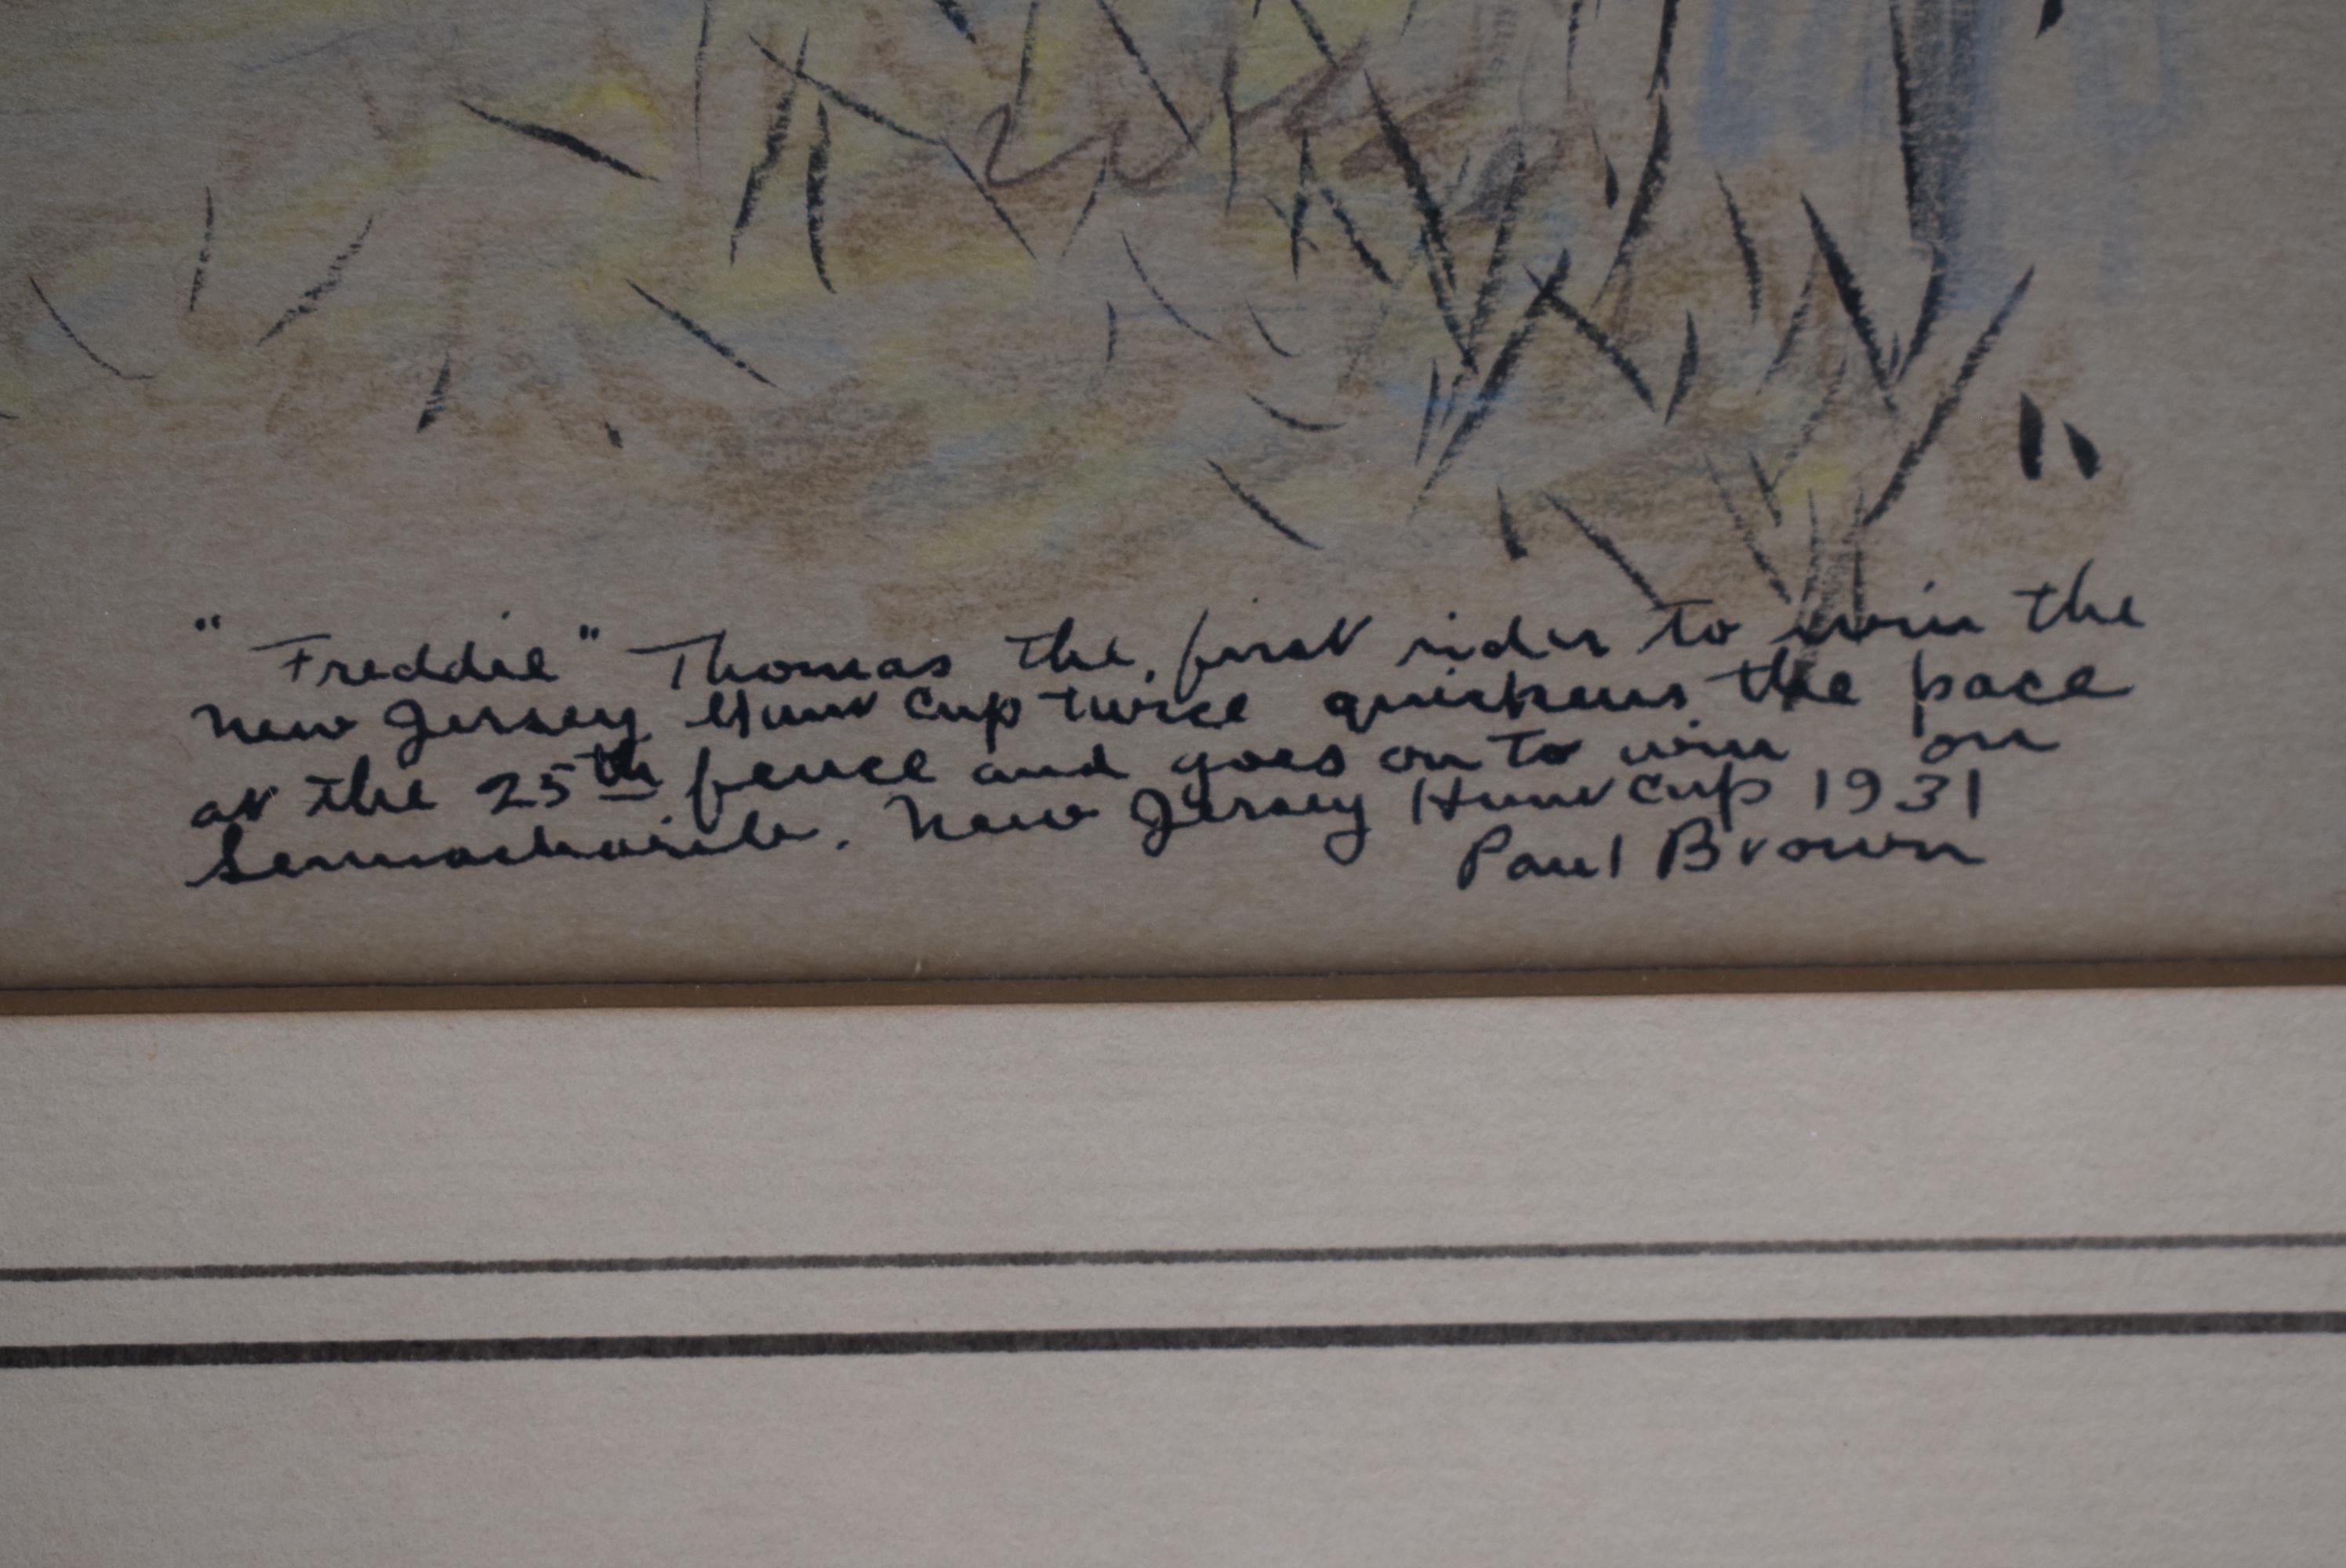 "Freddie" Thomas the, first rider to win the
New Jersey Hunt Cup twice quickens the pace
at the 25th fence and goes on to win on
New Jersey Hunt Cup 1931
Paul Brown